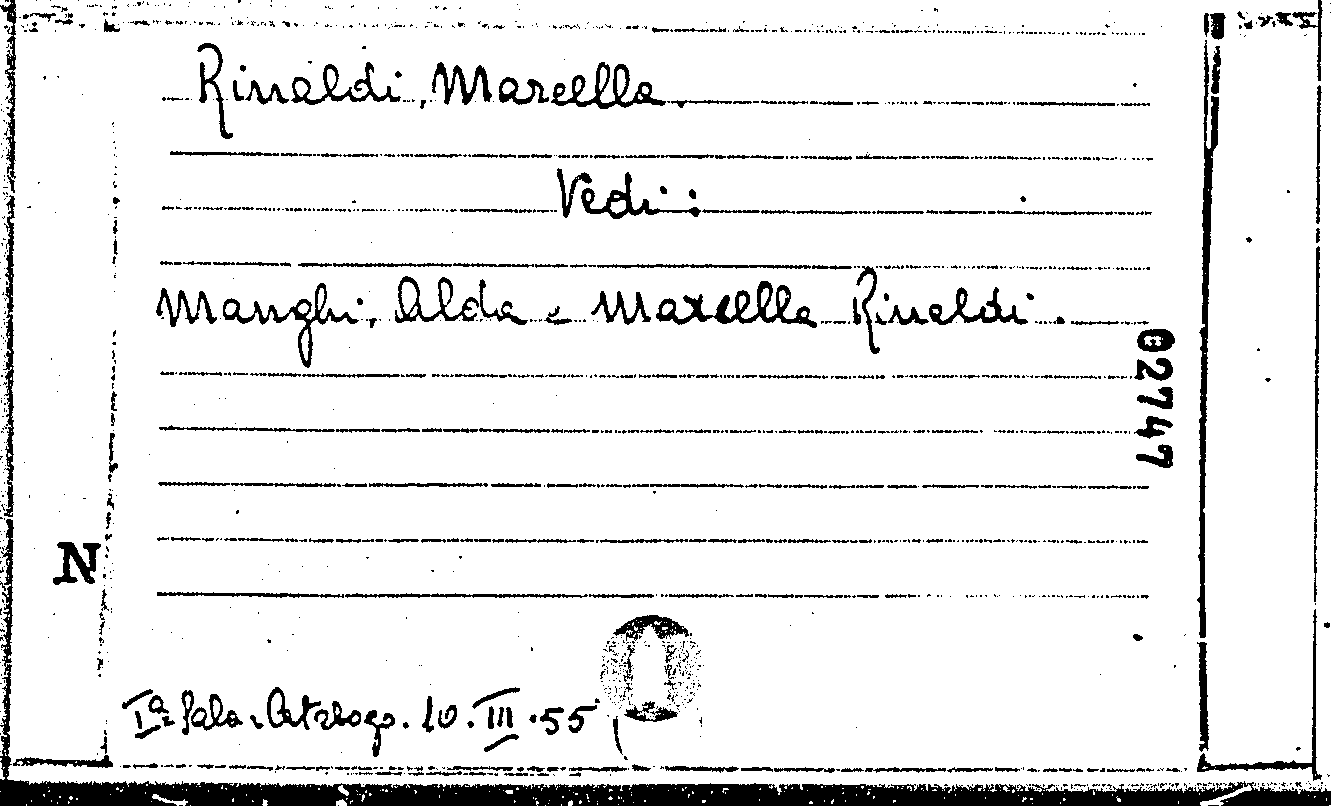 Rinaldi, Marcella.
Vedi:
Manghi, Alda e Marcella Rinaldi.
02747
N
Iª Sala. Catalogo. 10.III.55